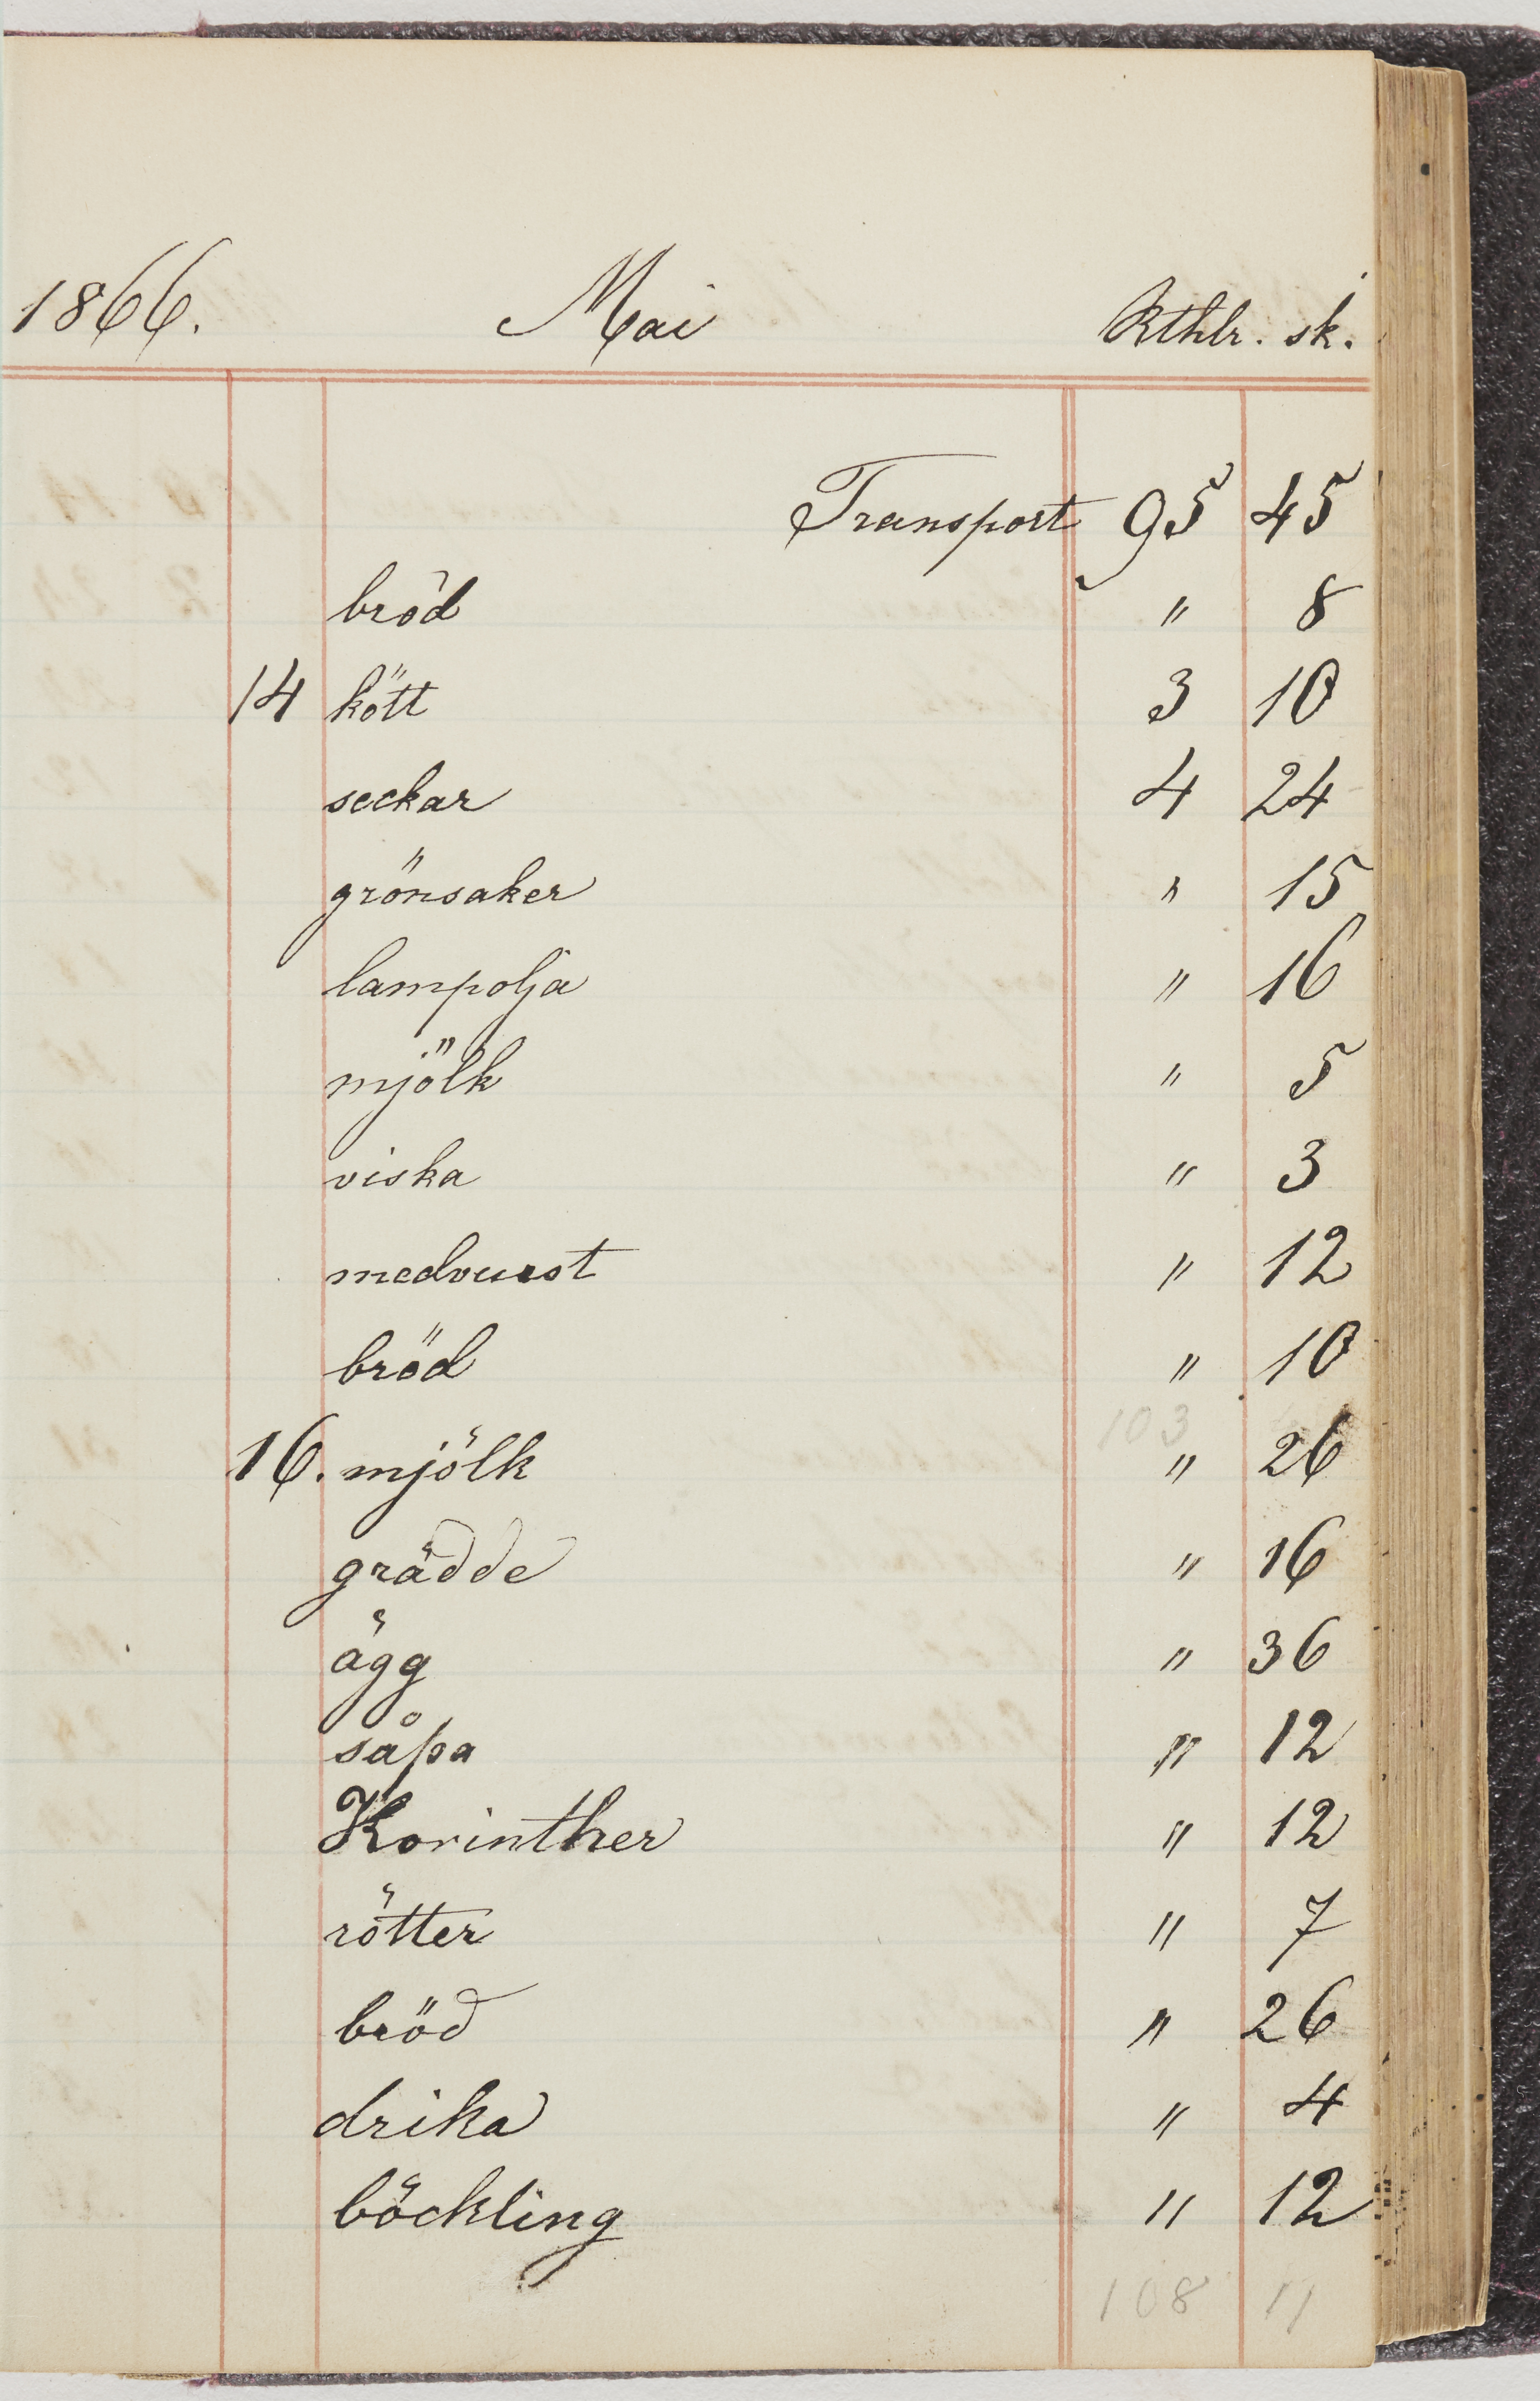 1866. Mai Rthlr. sk.
Transport 95 45
bröd " 8
14 kött 3 10
seckar 4 24
grönsaker " 15
lampolja " 16
mjölk " 5
viska " 3
medvurst " 12
bröd " 10
103
16. mjölk " 26
grädde " 16
ägg " 36
såpa " 12
Korinther " 12
rötter " 7
bröd " 26
drika " 4
böckling " 12
108 11